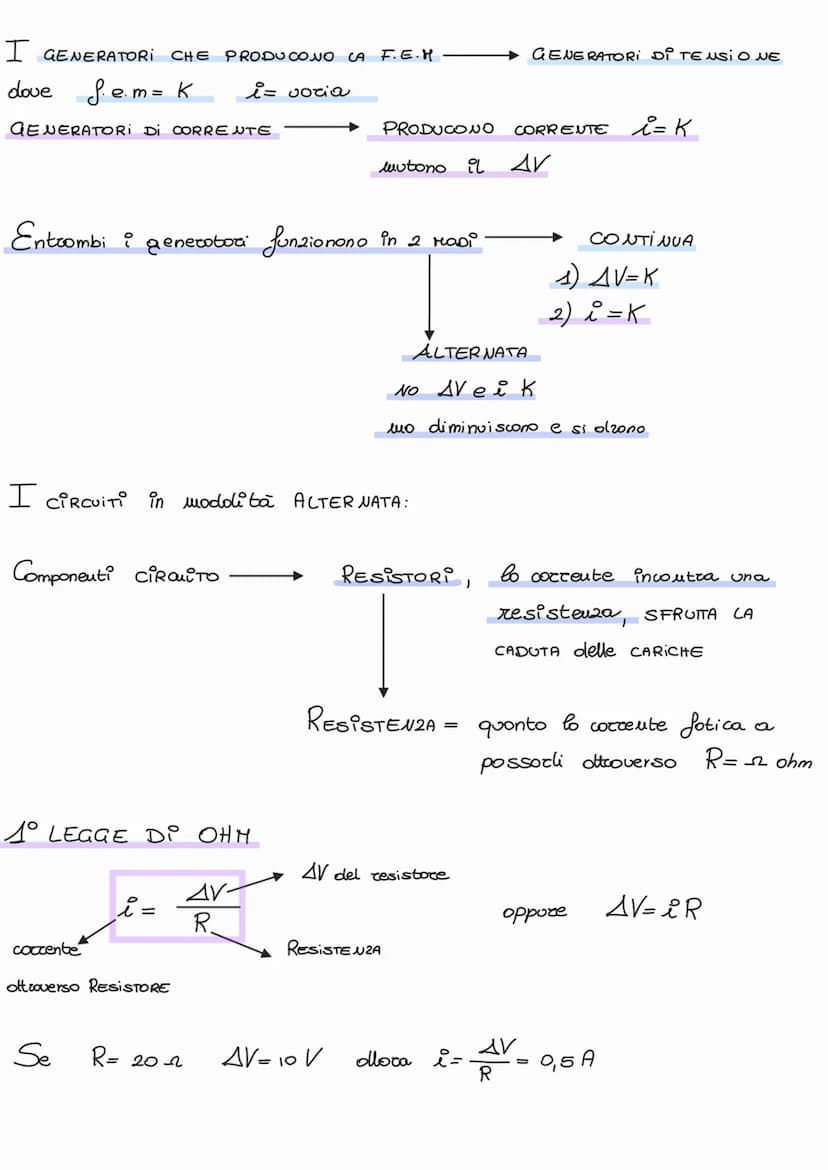 I GENERATORI CHE PRODUCONO LA F.E.M → GENERATORI DI TENSIONE
dove f.e.m = K i = varia
GENERATORI DI CORRENTE → PRODUCONO CORRENTE i = K
mutano il ΔV
Entrambi i generatori funzionano in 2 MODI → CONTINUA
1) ΔV = K
2) i = K
ALTERNATA
NO ΔV e i K
ma diminuiscono e si alzano
I CIRCUITI in modalità ALTERNATA:
Componenti CIRCUITO → RESISTORI, la corrente incontra una
resistenza, SFRUTTA LA
CADUTA delle CARICHE
RESISTENZA = quanto la corrente fatica a
passarli attraverso R = Ω ohm
1° LEGGE DI OHM
ΔV del resistore
i = ΔV / R oppure ΔV = i R
corrente RESISTENZA
attraverso RESISTORE
Se R = 20 Ω ΔV = 10 V allora i = ΔV / R = 0,5 A